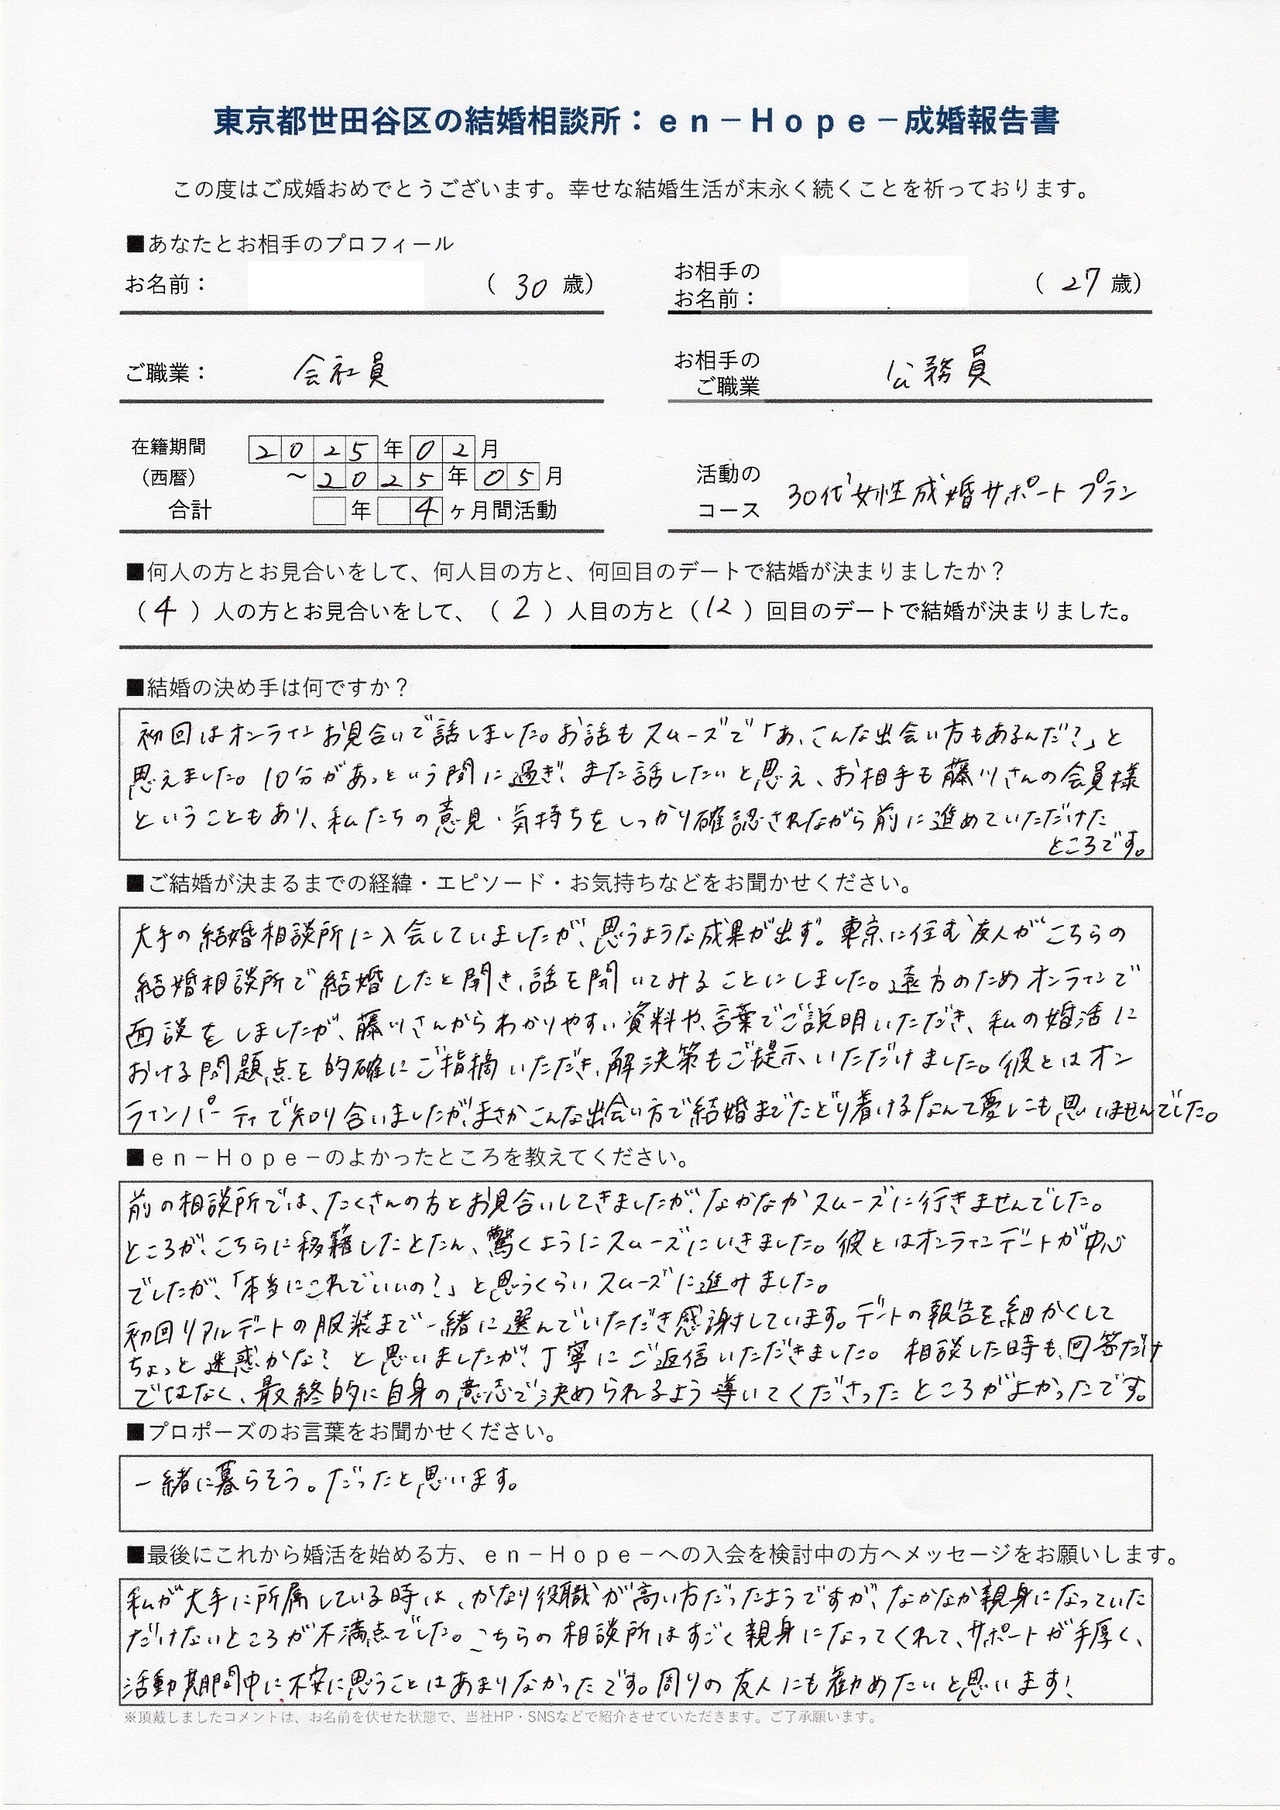 東京都世田谷区の結婚相談所：ｅｎ－Ｈｏｐｅ－成婚報告書
この度はご成婚おめでとうございます。幸せな結婚生活が末永く続くことを祈っております。
■あなたとお相手のプロフィール
お名前： （ 30 歳） お相手の お名前： （ 27 歳）
ご職業： 会社員 お相手の ご職業 公務員
在籍期間 2025年02月
（西暦） ～2025年05月
合計 年 4ヶ月間活動
活動の コース 30代女性成婚サポートプラン
■何人の方とお見合いをして、何人目の方と、何回目のデートで結婚が決まりましたか？
（ 4 ）人の方とお見合いをして、（ 2 ）人目の方と（ 12 ）回目のデートで結婚が決まりました。
■結婚の決め手は何ですか？
初回はオンラインお見合いで話しました。お話もスムーズで「あ、こんな出会い方もあるんだ？」と
思えました。10分があっという間に過ぎ、また話したいと思え、お相手も藤川さんの会員様
ということもあり、私たちの意見・気持ちをしっかり確認されながら前に進めていただけた
ところです。
■ご結婚が決まるまでの経緯・エピソード・お気持ちなどをお聞かせください。
大手の結婚相談所に入会していましたが、思うような成果が出ず。東京に住む友人がこちらの
結婚相談所で結婚したと聞き、話を聞いてみることにしました。遠方のためオンラインで
面談をしましたが、藤川さんからわかりやすい資料や、言葉でご説明いただき、私の婚活に
おける問題点を的確にご指摘いただき、解決策もご提示いただけました。彼とはオン
ラインパーティで知り合いましたが、まさかこんな出会い方で結婚までたどり着けるなんて夢にも思いませんでした。
■ｅｎ－Ｈｏｐｅ－のよかったところを教えてください。
前の相談所では、たくさんの方とお見合いしてきましたが、なかなかスムーズに行きませんでした。
ところが、こちらに移籍したとたん、驚くようにスムーズにいきました。彼とはオンラインデートが中心
でしたが、「本当にこれでいいの？」と思うくらいスムーズに進みました。
初回リアルデートの服装まで一緒に選んでいただき感謝しています。デートの報告を細かくして
ちょっと迷惑かな？ と思いましたが、丁寧にご返信いただきました。相談した時も、回答だけ
ではなく、最終的に自身の意志で決められるよう導いてくださったところがよかったです。
■プロポーズのお言葉をお聞かせください。
一緒に暮らそう。だったと思います。
■最後にこれから婚活を始める方、ｅｎ－Ｈｏｐｅ－への入会を検討中の方へメッセージをお願いします。
私が大手に所属している時は、かなり役職が高い方だったようですが、なかなか親身になっていた
だけないところが不満点でした。こちらの相談所はすごく親身になってくれて、サポートが手厚く、
活動期間中に不安に思うことはあまりなかったです。周りの友人にも勧めたいと思います！
※頂戴しましたコメントは、お名前を伏せた状態で、当社HP・SNSなどで紹介させていただきます。ご了承願います。